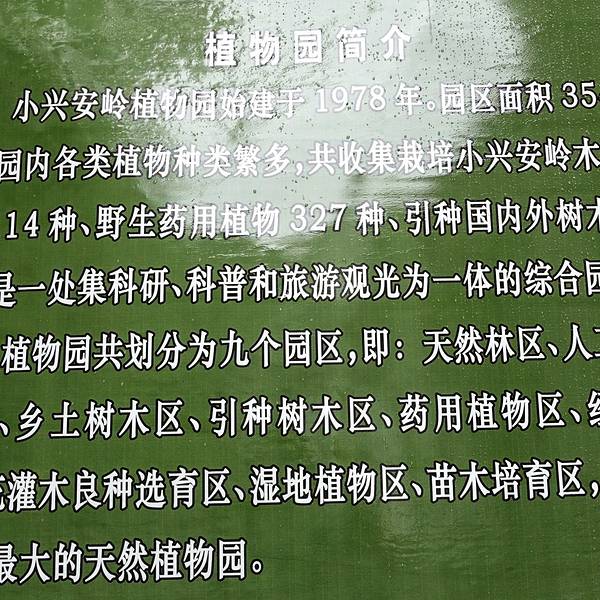 植物园简介
小兴安岭植物园始建于1978年。园区面积35
园内各类植物种类繁多,共收集栽培小兴安岭木
14种、野生药用植物327种、引种国内外树木
是一处集科研、科普和旅游观光为一体的综合园
植物园共划分为九个园区,即：天然林区、人工
、乡土树木区、引种树木区、药用植物区、
灌木良种选育区、湿地植物区、苗木培育区,
最大的天然植物园。